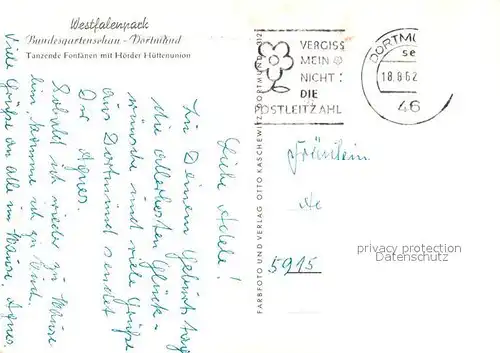 Westfalenpark
Bundesgartenschau - Dortmund
Tanzende Fontänen mit Hörder Hüttenunion
Liebe Adele!
Zu Deinem Geburtstag
die allerbesten Glück-
wünsche und viele Grüße
aus Dortmund sendet
Dir Agnes.
Sobald ich wieder zu Hause
bin komme ich zu Euch.
Viele Grüße an alle im Hause. Agnes.
FARBFOTO UND VERLAG OTTO KASCHEWITZ, DORTMUND
VERGISS
MEIN
NICHT :
DIE
POSTLEITZAHL
DORTMU
se
18.8.62
46
Fräulein
Ae
5915
privacy protection
Datenschutz